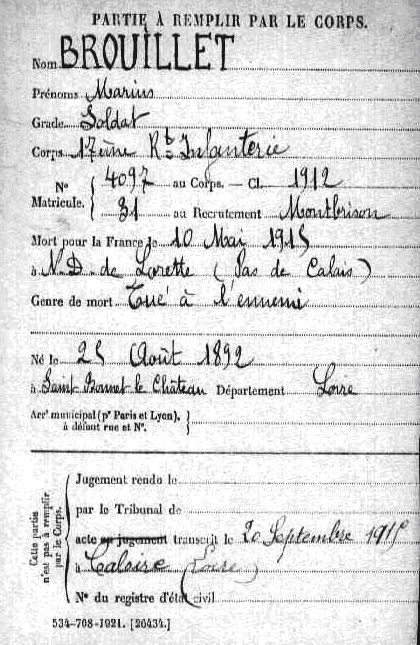 PARTIE À REMPLIR PAR LE CORPS.
Nom BROUILLET
Prénoms Marius
Grade Soldat
Corps 17ème Rt Infanterie
N° Matricule. { 4097 au Corps. — Cl. 1912
31 au Recrutement Montbrison
Mort pour la France le 10 Mai 1915
à N. D. de Lorette (Pas de Calais)
Genre de mort Tué à l'ennemi
Né le 25 Août 1892
à Saint-Bonnet-le-Château Département Loire
Arrt municipal (pr Paris et Lyon), à défaut rue et N°. }
Cette partie n'est pas à remplir par le Corps.
Jugement rendu le
par le Tribunal de
acte ou jugement transcrit le 20 Septembre 1915
à Caloire (Loire)
N° du registre d'état civil
534-708-1921. [26434.]